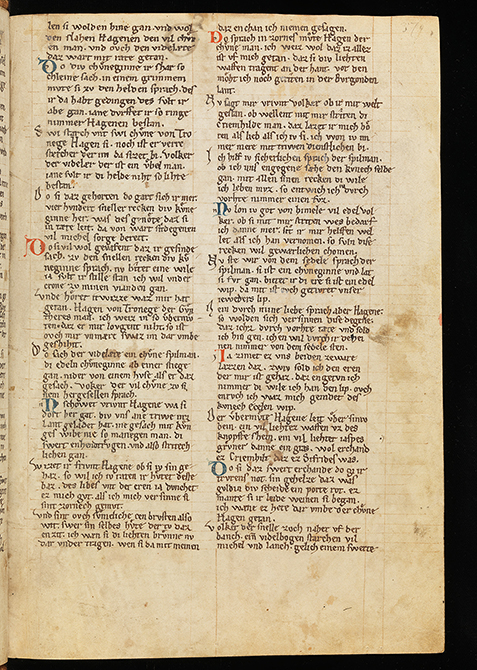 len si wolden hine gan. vnd wol
den slahen Hagenen den vil chvn
en man. vnd ovch den videlære
daz wart mit ræte getan.
Do div chvneginne ir shar so
chleine sach. in einem grimmen
mvte si zv den helden sprach. des
ir da habt gedingen des svlt ir
abe gan. iane dvrffet ir so ringe
nimmer Hagenen bestan.
Swi starch vnt swi chvne von Tro
nege Hagen si. noch ist er verre
stercher der im da sizzet bi. Volker
der videler der ist ein vbel man.
iane svlt ir di helde niht so lihte
bestan.
Do si daz gehorten do garte sich ir mer.
vier hvndert sneller recken div kvne
ginne her. was des genote daz si
in tæte leit. da von wart sit degenen
vil michel sorge bereit.
Do si vil wol gewafent daz ir gesinde
sach. zv den snellen recken div kv
neginne sprach. nv bitet eine wile
ia svlt ir stille stan. ich wil vnder
crone zv minen vianden gan.
Vnde horet itwizze waz mir hat
getan. Hagen von Tronege der Gvn
theres man. ich weiz in so vbermv
ten. daz er mir lovgent niht. so ist
ovch mir vnmære swaz im dar vmbe
geshiht.
Do sich der videlære ein chvne spilman.
di edeln chvneginne ab einer stiege
gan. nider von einem hvse als er daz
gesach. Volker der vil chvne zv si
nem hergesellen sprach.
Nv schowet vrivnt Hagene wa si
dort her gat. div vns ane triwe inz
lant geladet hat. ine gesach mit kvn
ges wibe nie so manegen man. di
swert enhende trvgen. vnd also stritech
lichen gan.
Wizzet ir frivnt Hagene ob si iv sin ge
haz. so wil ich iv raten ir hvtet deste
baz. des libes vnt der eren ia dvnchet
ez mich gvt. als ich mich versinne si
sint zornech gemvt.
Vnd sint ovch svmeliche zen brvsten also
wit. swer sin selbes hvte der tv daz
enzit. ich wæn si di liehten brvnne ny
dar vnder tragen. wen si da mit meinen
daz enchan ich niemen gesagen.
Do sprach in zornes mvte Hagen der
chvne man. ich weiz wol daz iz allez
ist vf mich getan. daz si div liehten
waffen tragent an der hant. vor den
moht ich noch geriten in der Bvrgonden
lant.
Nv sagt mir vrivnt Volker ob ir mir welt
gestan. ob wellent mit mir striten di
Criemhilde man. daz lazet ir mich ho
ren als lieb als ich iv si. ich won iv im
mer mere mit triwen dienstlichen bi.
Ich hilf iv sicherlichen sprach der spilman.
ob ich vns engegene sæhe den kvnech selbe
gan. mit allen sinen recken di wile
ich leben mvz. so entwich ich dvrch
vorhte nimmer einen fvz.
Nv lon iv got von himele vil edel Vol
ker. ob si mit mir striten wes bedarf
ich danne mer. sit ir mir helfen wel
let als ich han vernomen. so svln dise
recken vil gewarlichen chomen.
Nv ste wir von dem sedele sprach der
spilman. si ist ein chvneginne vnd lat
si fvr gan. bitet ir di ere si ist ein edel
wip. da mit ist ovch getivret vnser
ieweders lip.
Nein dvrch mine liebe sprach aber Hagene
so wolden sich versinnen dise degene.
daz ichz dvrch vorhte tæte vnd sold
ich hin gen. ich en wil dvrch ir deheî
nen nimmer von dem sedele sten.
Ia zimet ez vns beiden zeware
lazzen daz. zwiv sold ich den eren
der mir ist gehaz. daz engetvn ich
nimmer di wile ich han den lip. ovch
enrvch ich waz mich gnidet des
kvnech Etzelen wip.
Der vbermvte Hagene leit vber siniv
bein. ein vil liehtez waffen vz des
knopffe shein. ein vil liehter iaspes
grvner danne ein gras. wol erchand
ez Criemhilt daz ez Sifrides was.
Do si daz swert erchande do gie ir
triwens not. sin gehelze daz was
gvldin div scheide ein porte rot. ez
mante si ir leide weinen si began.
ich wæne ez hete dar vmbe der chvne
Hagen getan.
Volker der snelle zoch naher vf der
banch. ein videlbogen starchen vil
michel vnd lanch. gelich einem swerte